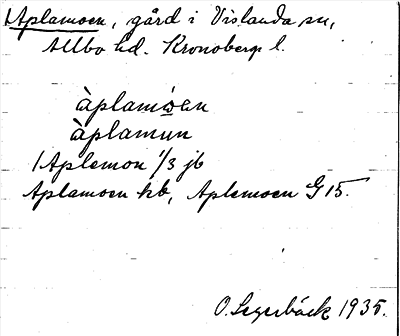 1 Aplamoen, gård i Vislanda sn,
Allbo hd. Kronobergs l.
àplamoen
àplamun
1 Aplemon 1/3 jb
Aplamoen kb, Aplemoen G 15.
O. Segerbäck 1935.